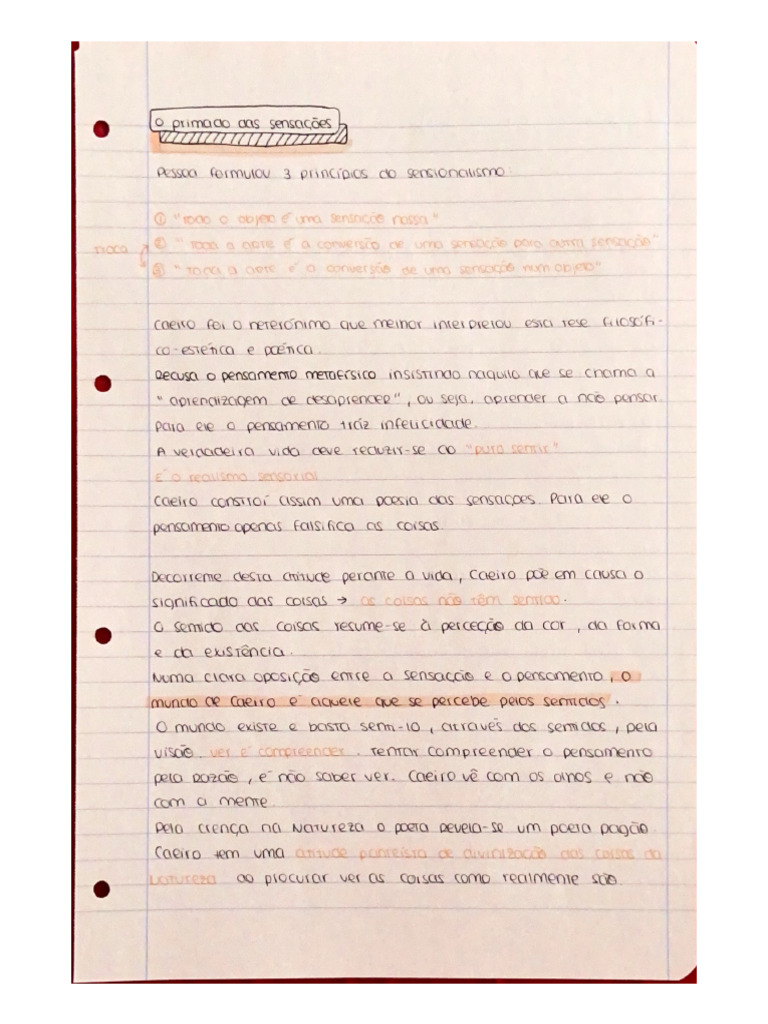 O primado das sensações
Pessoa formulou 3 princípios do sensionalismo:
① "Todo o objeto é uma sensação nossa"
troca ② "Toda a arte é a conversão de uma sensação para outra sensação"
③ "Toda a arte é a conversão de uma sensação num objeto"
Caeiro foi o heterónimo que melhor interpretou esta tese filosófi-
co-estética e poética.
Recusa o pensamento metafísico insistindo naquilo que se chama a
"aprendizagem de desaprender", ou seja, aprender a não pensar.
Para ele o pensamento traz infelicidade.
A verdadeira vida deve reduzir-se ao "puro sentir"
É o realismo sensorial
Caeiro constroí assim uma poesia das sensações. Para ele o
pensamento apenas falsifica as coisas.
Decorrente desta atitude perante a vida, Caeiro põe em causa o
significado das coisas → as coisas não têm sentido.
O sentido das coisas resume-se à perceção da cor, da forma
e da existência.
Numa clara oposição entre a sensação e o pensamento, o
mundo de Caeiro é aquele que se percebe pelos sentidos.
O mundo existe e basta senti-lo, através dos sentidos, pela
visão. ver é compreender. Tentar compreender o pensamento
pela razão, é não saber ver. Caeiro vê com os olhos e não
com a mente.
Pela crença na Natureza o poeta revela-se um poeta pagão.
Caeiro tem uma atitude panteísta de divinização das coisas da
Natureza ao procurar ver as coisas como realmente são.